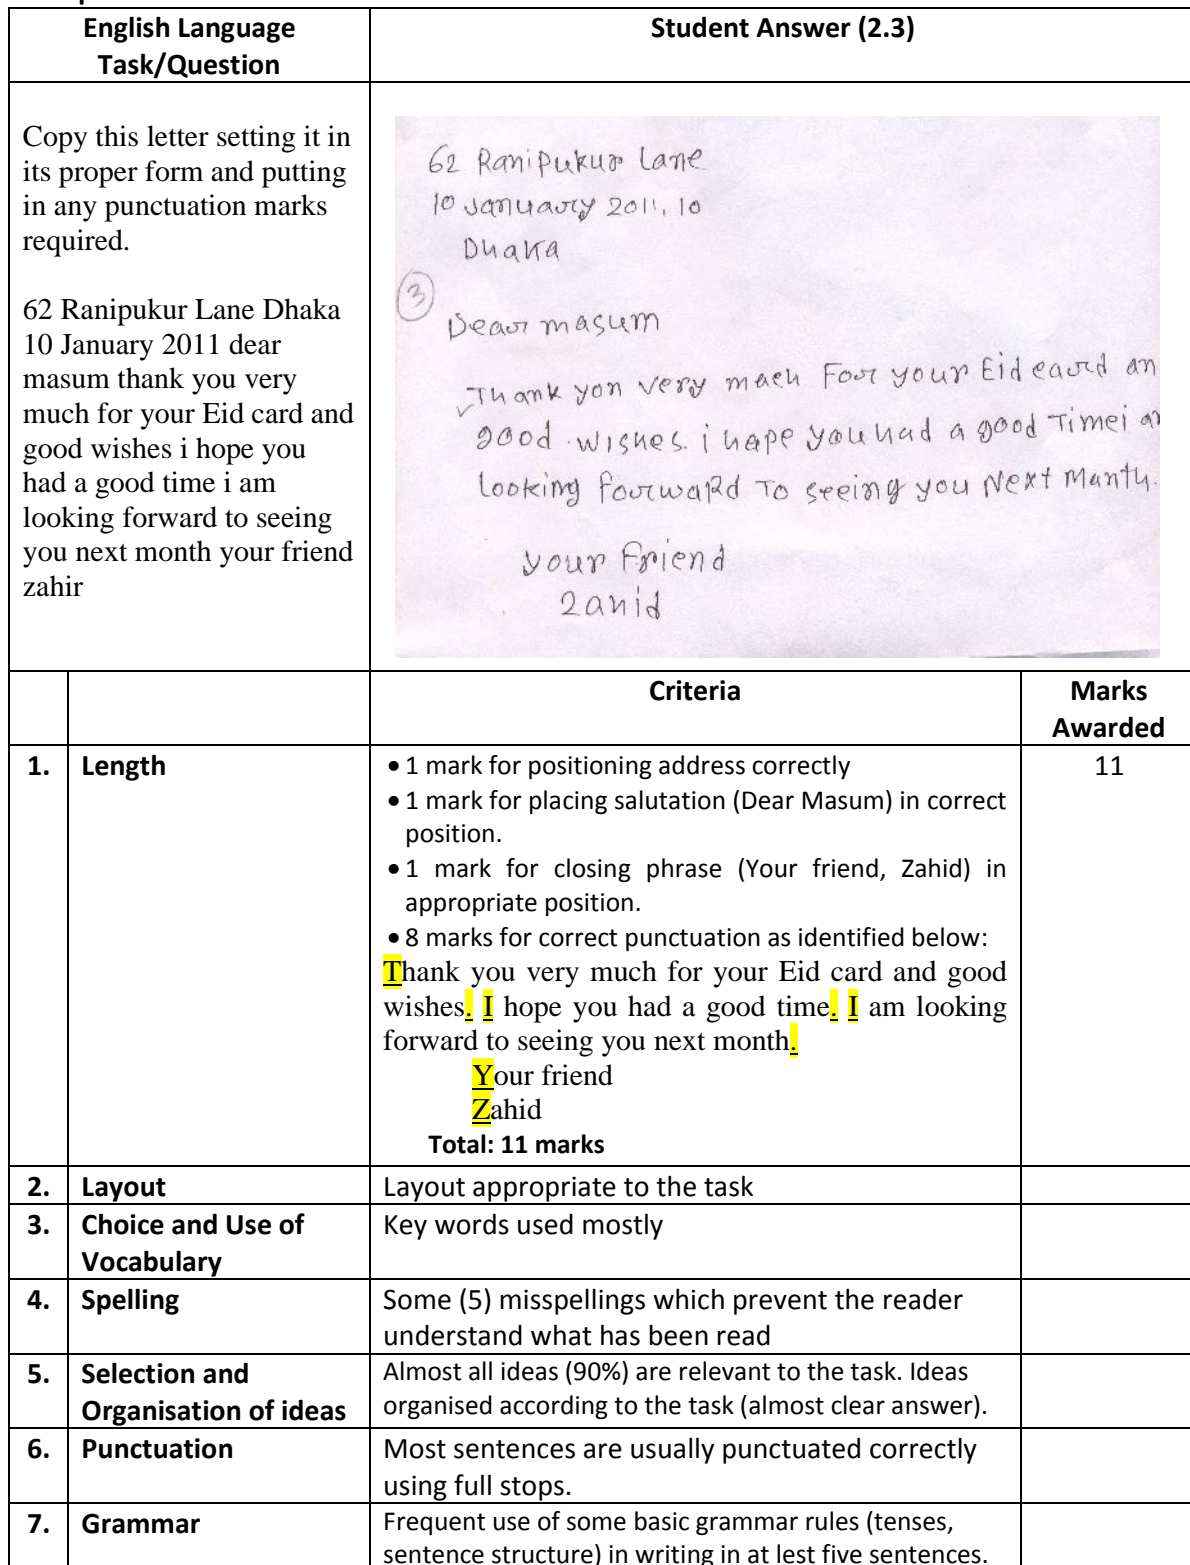 English Language
Task/Question
Student Answer (2.3)
Copy this letter setting it in
its proper form and putting
in any punctuation marks
required.
62 Ranipukur Lane Dhaka
10 January 2011 dear
masum thank you very
much for your Eid card and
good wishes i hope you
had a good time i am
looking forward to seeing
you next month your friend
zahir
62 Ranipukur Lane
10 January 2011, 10
Dhaka
3
Dear masum
Thank yon very mach For your Eid card an
good wishes. i hape you had a good Timei
looking forward To seeing you Next Manth.
your Friend
Zahid
Criteria
Marks
Awarded
1. Length
• 1 mark for positioning address correctly
• 1 mark for placing salutation (Dear Masum) in correct
position.
• 1 mark for closing phrase (Your friend, Zahid) in
appropriate position.
• 8 marks for correct punctuation as identified below:
Thank you very much for your Eid card and good
wishes. I hope you had a good time. I am looking
forward to seeing you next month.
Your friend
Zahid
Total: 11 marks
11
2. Layout
Layout appropriate to the task
3. Choice and Use of
Vocabulary
Key words used mostly
4. Spelling
Some (5) misspellings which prevent the reader
understand what has been read
5. Selection and
Organisation of ideas
Almost all ideas (90%) are relevant to the task. Ideas
organised according to the task (almost clear answer).
6. Punctuation
Most sentences are usually punctuated correctly
using full stops.
7. Grammar
Frequent use of some basic grammar rules (tenses,
sentence structure) in writing in at lest five sentences.